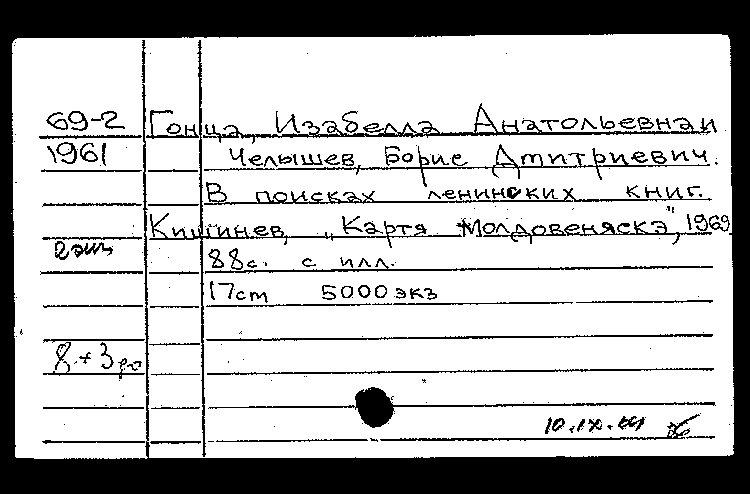 69-2 Гонца, Изабелла Анатольевна и
1961 Челышев, Борис Дмитриевич.
В поисках ленинских книг.
Кишинев, „Картя Молдовеняскэ", 1969
2 экз
88с. с илл.
17cm 5000 экз
8 + 3
10.IX.69